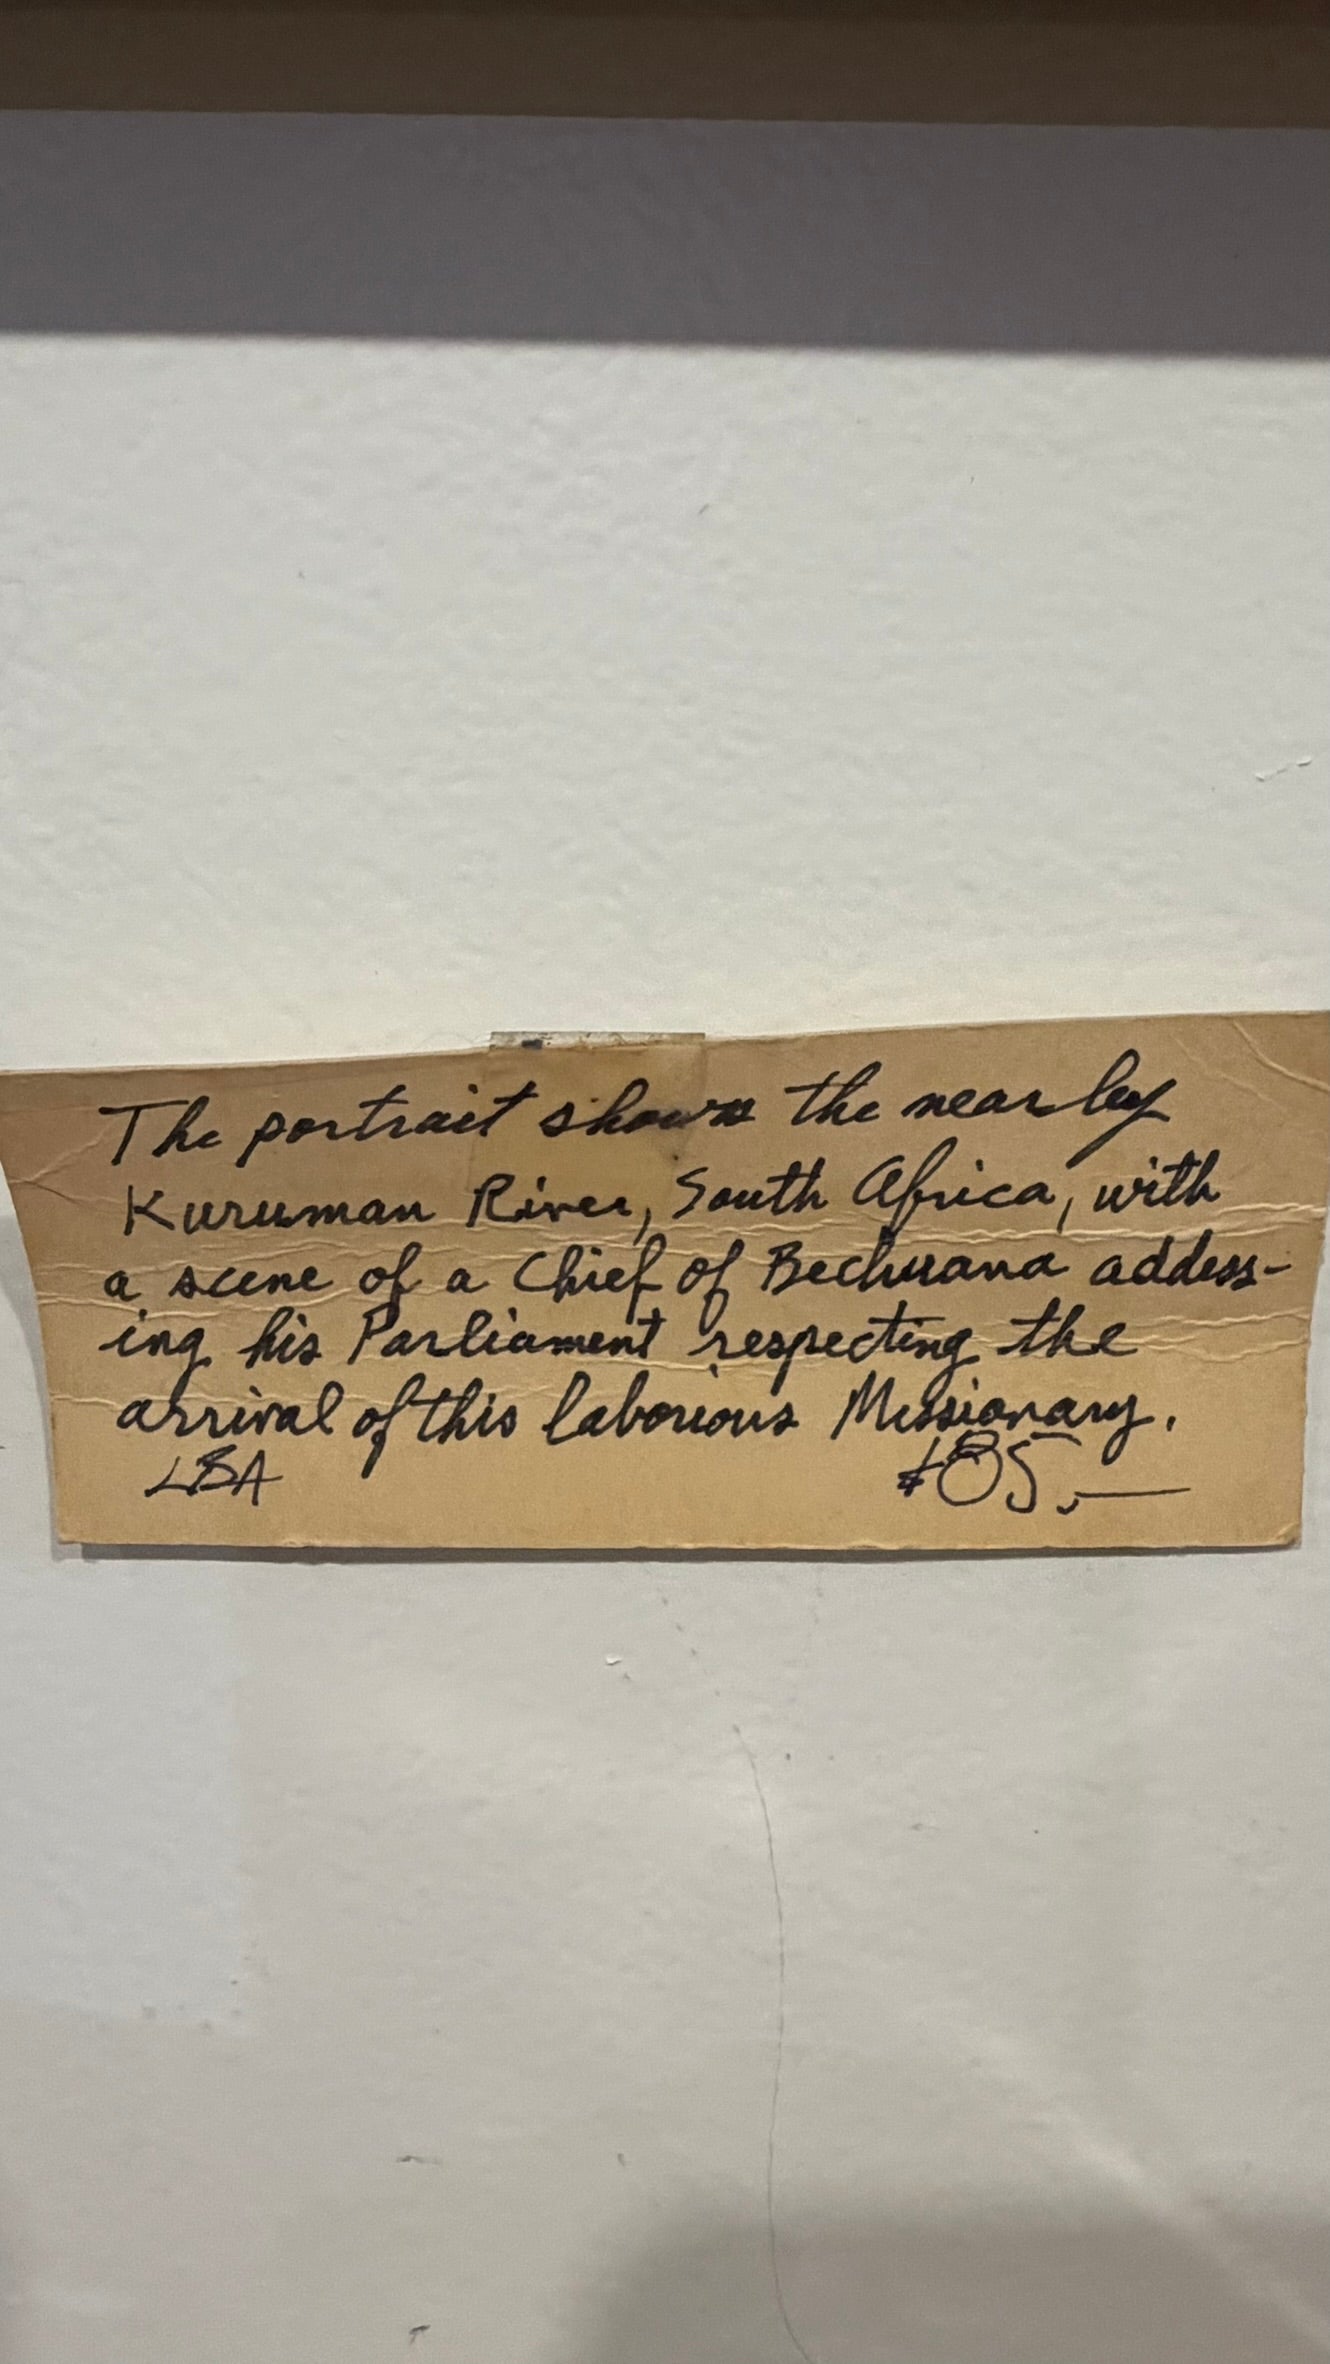 The portrait shows the near by
Kuruman River, South Africa, with
a scene of a Chief of Bechuana address-
ing his Parliament respecting the
arrival of this laborious Missionary.
LBA $85.—